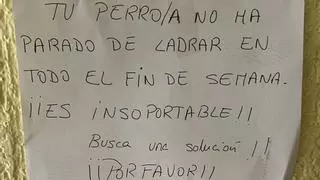 TU PERRO/A NO HA
PARADO DE LADRAR EN
TODO EL FIN DE SEMANA.
¡¡ES INSOPORTABLE!!
Busca una solución!!
¡¡POR FAVOR!!